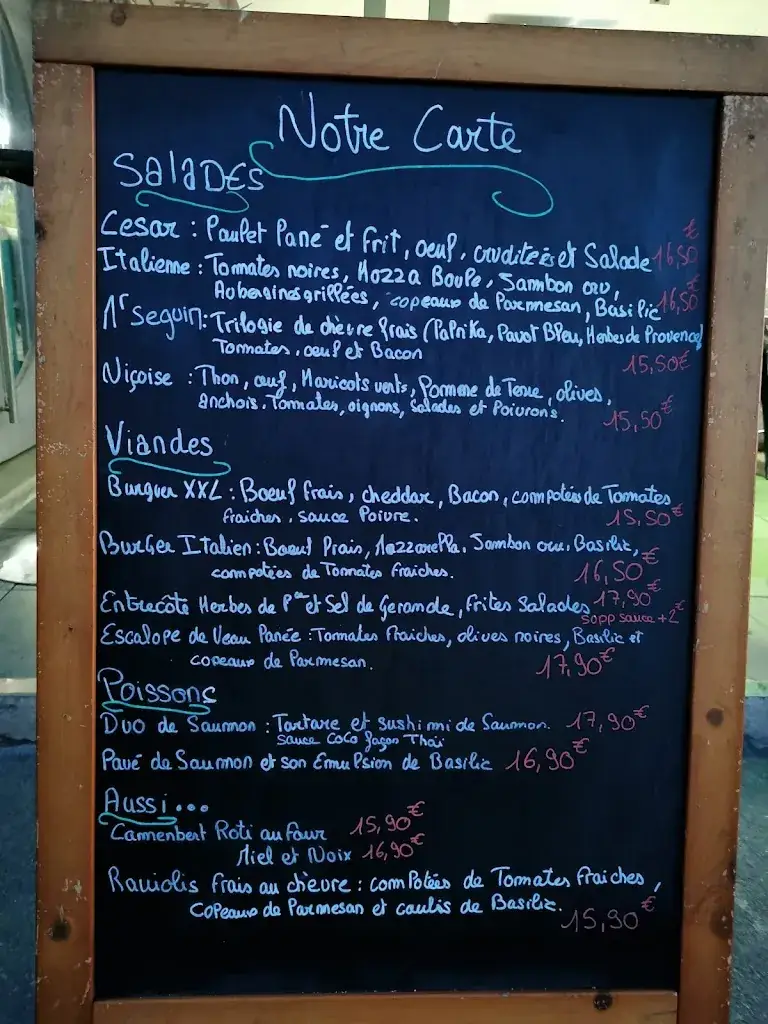 Notre Carte
SALADES
Cesar : Poulet Pané et frit, oeuf, cruditées et Salade 16,50€
Italienne : Tomates noires, Mozza Boule, Jambon cru,
Aubergines grillées, copeaux de Parmesan, Basilic 16,50€
Mr Seguin : Trilogie de chèvre frais (Paprika, Pavot Bleu, Herbes de Provence)
Tomates, oeuf et Bacon 15,50€
Niçoise : Thon, oeuf, Haricots verts, Pomme de Terre, olives,
anchois, Tomates, oignons, Salades et Poivrons. 15,50€
Viandes
Burguer XXL : Boeuf frais, cheddar, Bacon, compotées de Tomates
fraiches, sauce Poivre. 15,50€
Burger Italien : Boeuf frais, Mozzarella, Jambon cru, Basilic,
compotées de Tomates fraiches. 16,50€
Entrecôte Herbes de Pce et Sel de Gerande, frites Salades 17,90€
supp sauce +2€
Escalope de Veau Panée : Tomates fraiches, olives noires, Basilic et
copeaux de Parmesan. 17,90€
Poissons
Duo de Saumon : Tartare et sushimi de Saumon. 17,90€
sauce Coco façon Thaï
Pavé de Saumon et son Emulsion de Basilic 16,90€
Aussi...
Camenbert Roti au four 15,90€
Miel et Noix 16,90€
Raviolis frais au chèvre : comPotées de Tomates fraiches,
Copeaux de Parmesan et coulis de Basilic. 15,90€